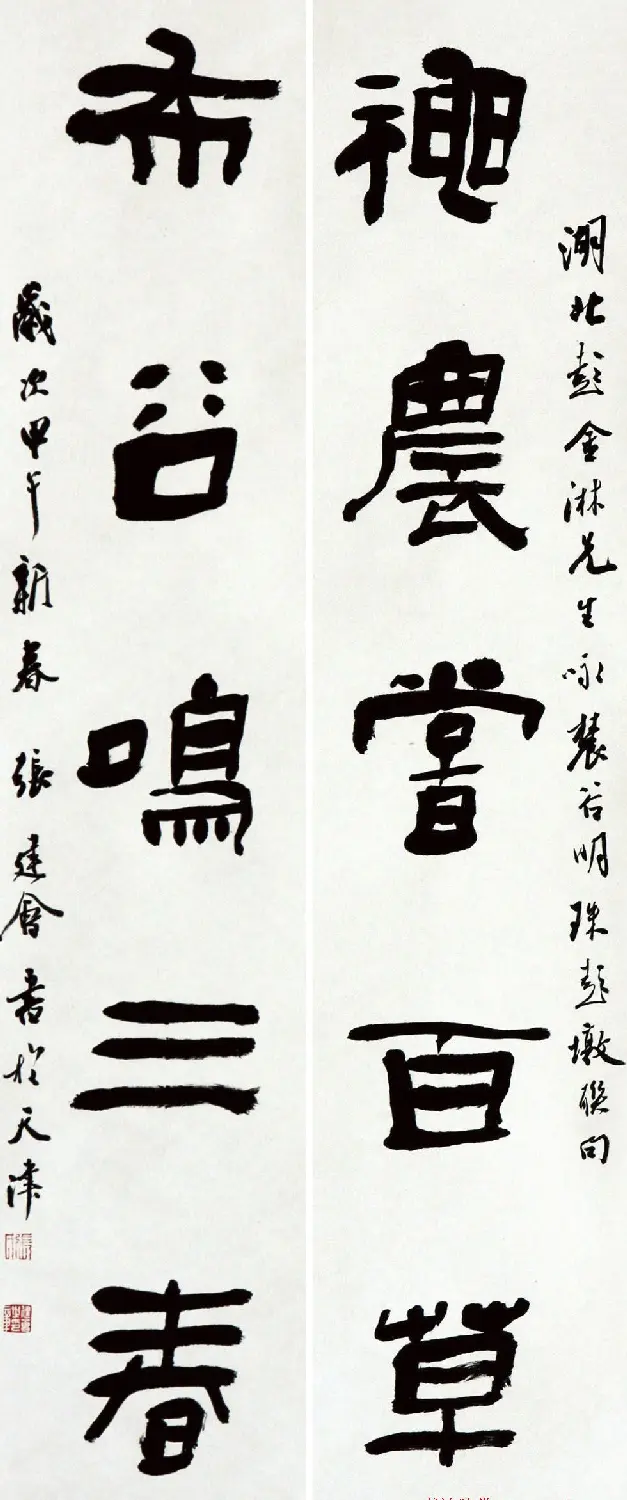 湖北彭金淋先生咏農谷明珠彭墩聯句
神農嘗百草
布谷鳴三春
歲次甲午新春張建會書於天津